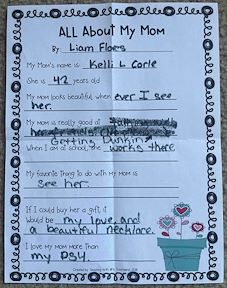 All About My Mom
By: Liam Flores
My Mom's name is: Kelli L Corle
She is 42 years old
My mom looks beautiful when ever I see
her.
My mom is really good at
Getting Dunking
When I am at school, she works there.
My favorite thing to do with my mom is
see her.
If I could buy her a gift, it
would be my love, and
a beautiful necklace.
I love my mom more than
my DS4.